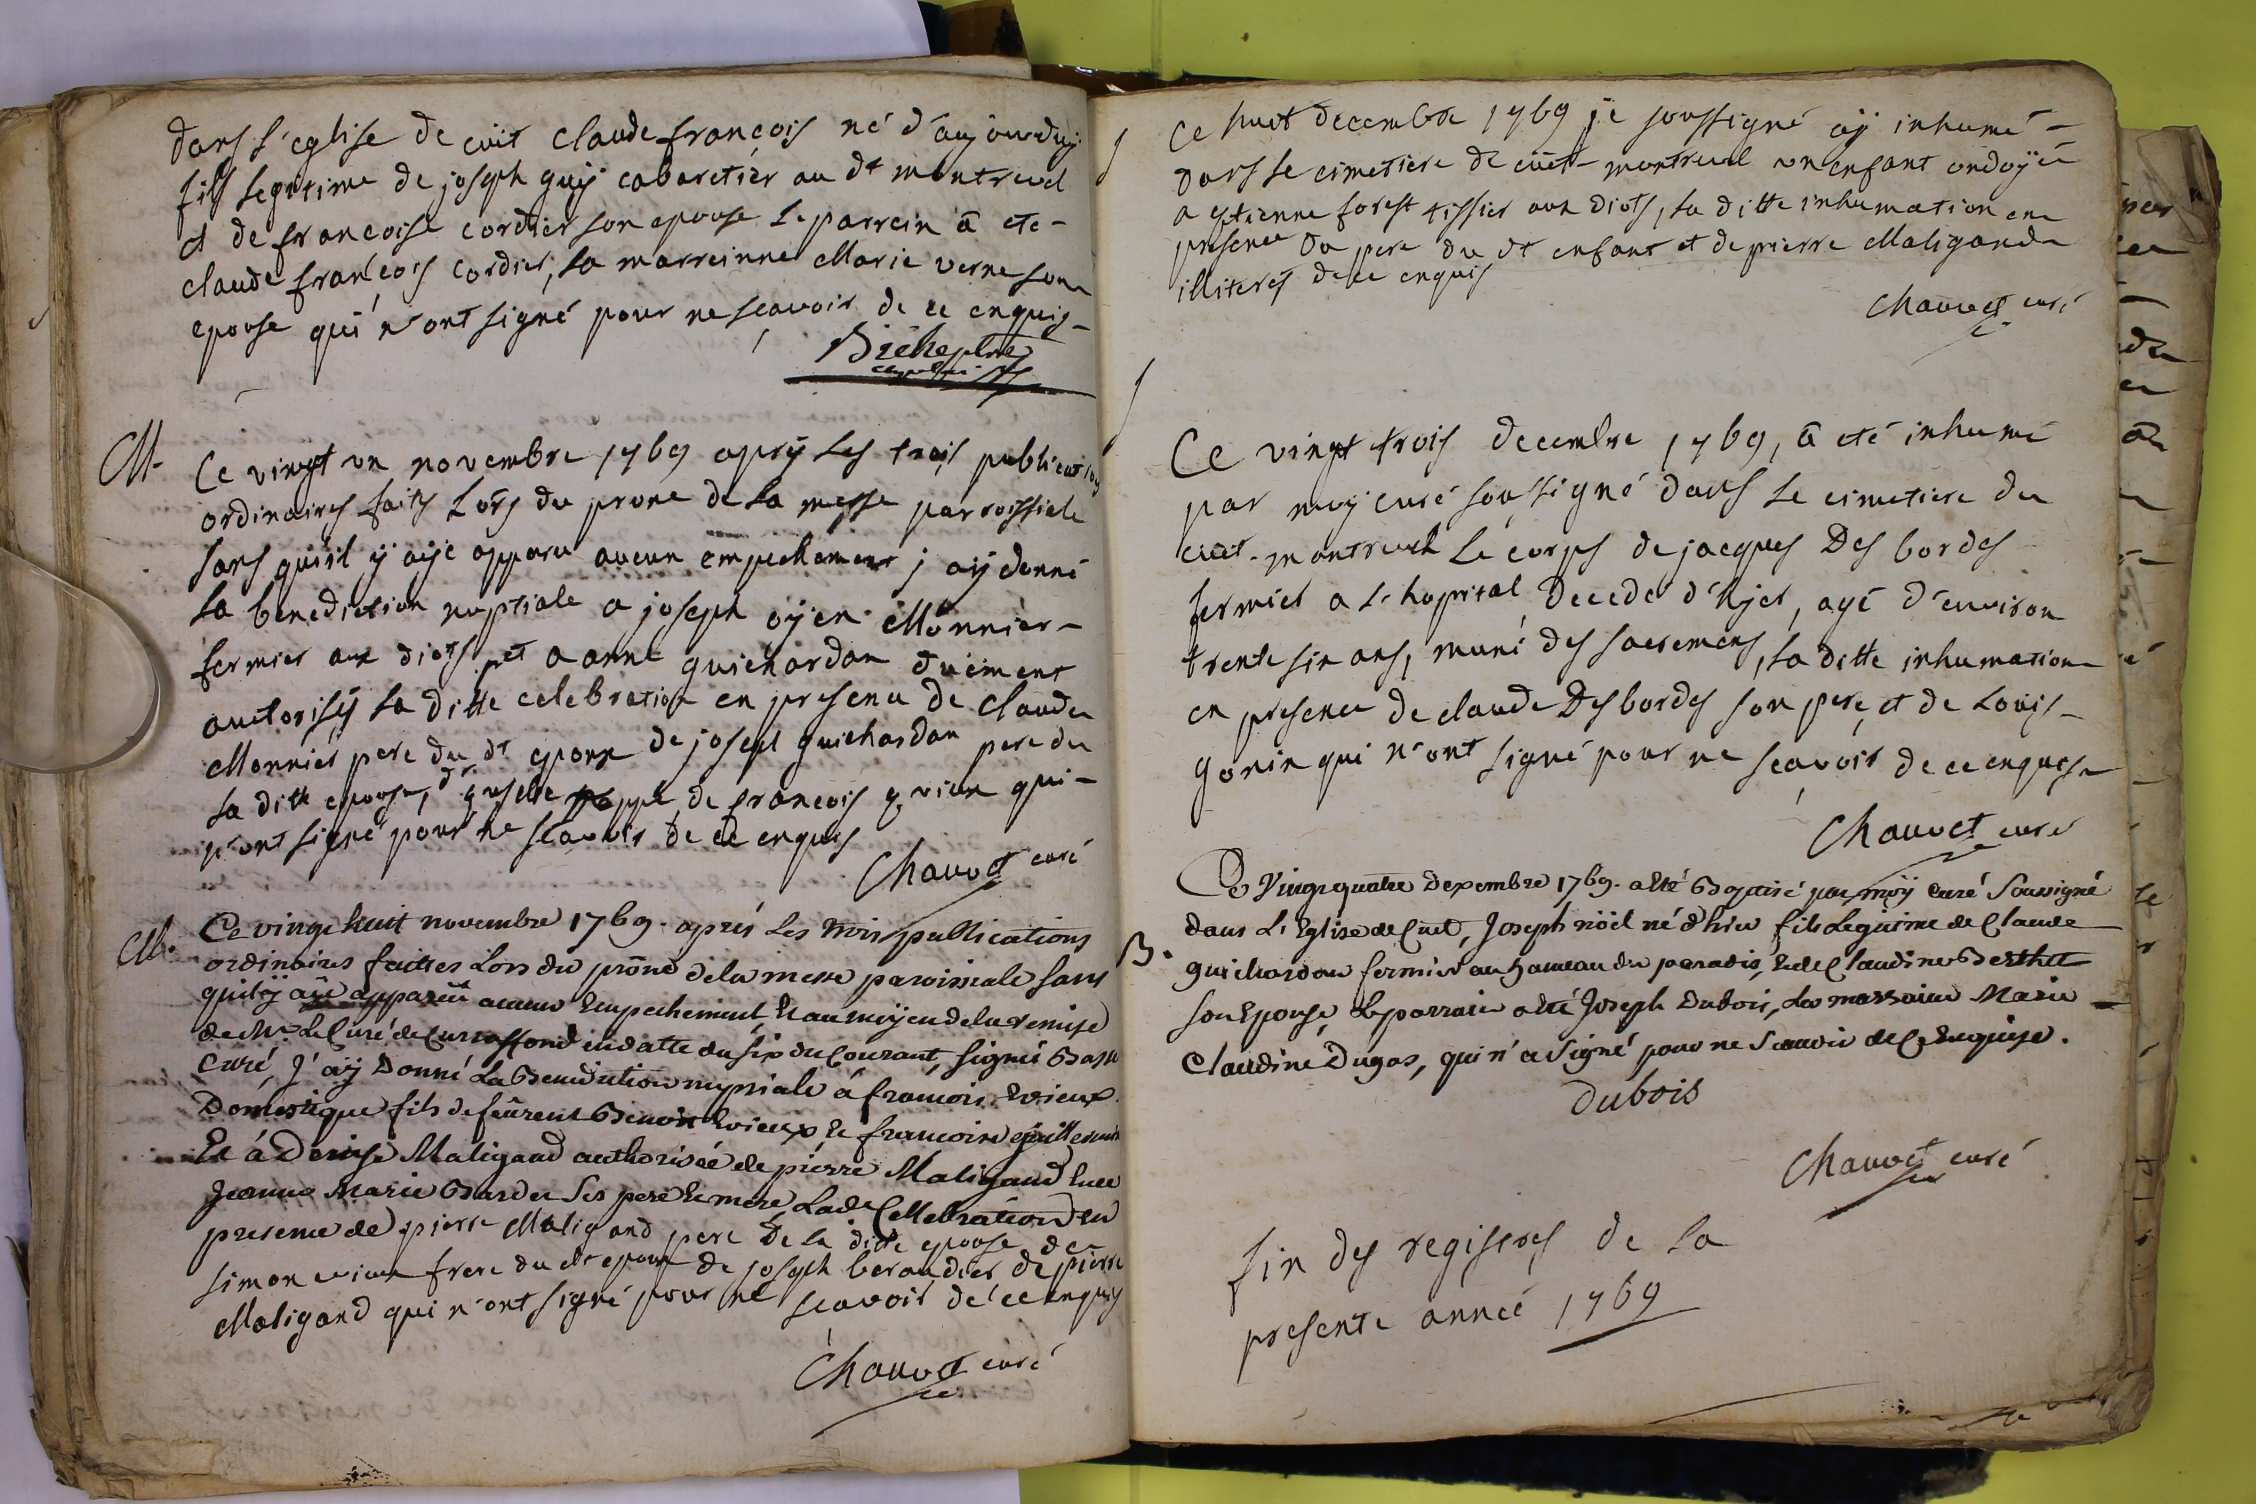 dans l'eglise de cuit claude françois né d'aujourduy
fils legitime de joseph guy cabaretier au dt montreuel
et de francoise cordier son epouse le parrein â eté
claude françois cordier, la marreinne Marie verne son
epouse qui n'ont signé pour ne scavoir de ce enquis
M. Ce vingt un novembre 1769 aprÿ les trois publications
ordinaires faits lors du prone de la messe parroissiale
sans qu'il ÿ aÿe apparu aucun empechement j'aÿ donné
la benediction nuptiale a joseph oÿen Monnier
fermier aux diots et a anne guichardan duement
auctorisÿ la ditte celebration en presence de claude
Monnier pere du dt epoux de joseph guichardan pere du
la ditte epouse, de françois
n'ont signé pour ne scavoir de ce enquis
Chauvet curé
M. Ce vingt huit novembre 1769. aprés les trois publications
ordinaires faittes Lors du prône de la messe paroissiale sans
quil ÿ aïe apparüt aucun Empechement, Et au moÿen de la remise
de Mr. Le Curé de Curciaffond en datte du six du Courant, signé
Curé, J'aÿ Donné La Benediction nuptiale á francois
Domestique fils de feu Benoit Et francoise
Et á Denise Maligand authorisée de pierre Maligand Et de
Jeanne Marie Bardet ses pere Et mere, Lade Cellebration En
presence de pierre Maligand pere de la ditte epouse de
simon frere du dt epoux de joseph beraudier de pierre
Maligand qui n'ont signé pour ne scavoir de ce enquis
Chauvet curé
Ce huit decembre 1769 je soussigné aÿ inhumé
dans le cimetiere de cuet-montreuel un enfant ondoÿé
a estienne forest tissier aux diots, la ditte inhumation en
presence du pere du dt enfant et de pierre Maligand
illiterés de ce enquis
Chauvet curé
Ce vingt trois decembre 1769, â eté inhumé
par moy curé soussigné dans le cimetiere du
cuet-montreuel le corps de jacques Des bordes
fermier a l'hopital decede d'hyer, agé d'environ
trente six ans, muni des sacremens, la ditte inhumation
en presence de claude Des bordes son pere, et de Louis
gonin qui n'ont signé pour ne scavoir de ce enquis
Chauvet curé
Ce Vingt quatre decembre 1769. a Eté Baptisé par moÿ Curé Soussigné
dans L'Eglise de Cuet, Joseph nöel né d'hier fils Legitime de Claude
B. guichardan fermier au hameau du paradis, Et de Claudine Berthet
son Epouse, Le parrain a Eté Joseph Dubois, La marraine Marie
Claudine Dugas, qui n'a signé pour ne Scavoir de Ce Enquise.
Dubois
Chauvet curé
fin des registres de la
presente anneé 1769